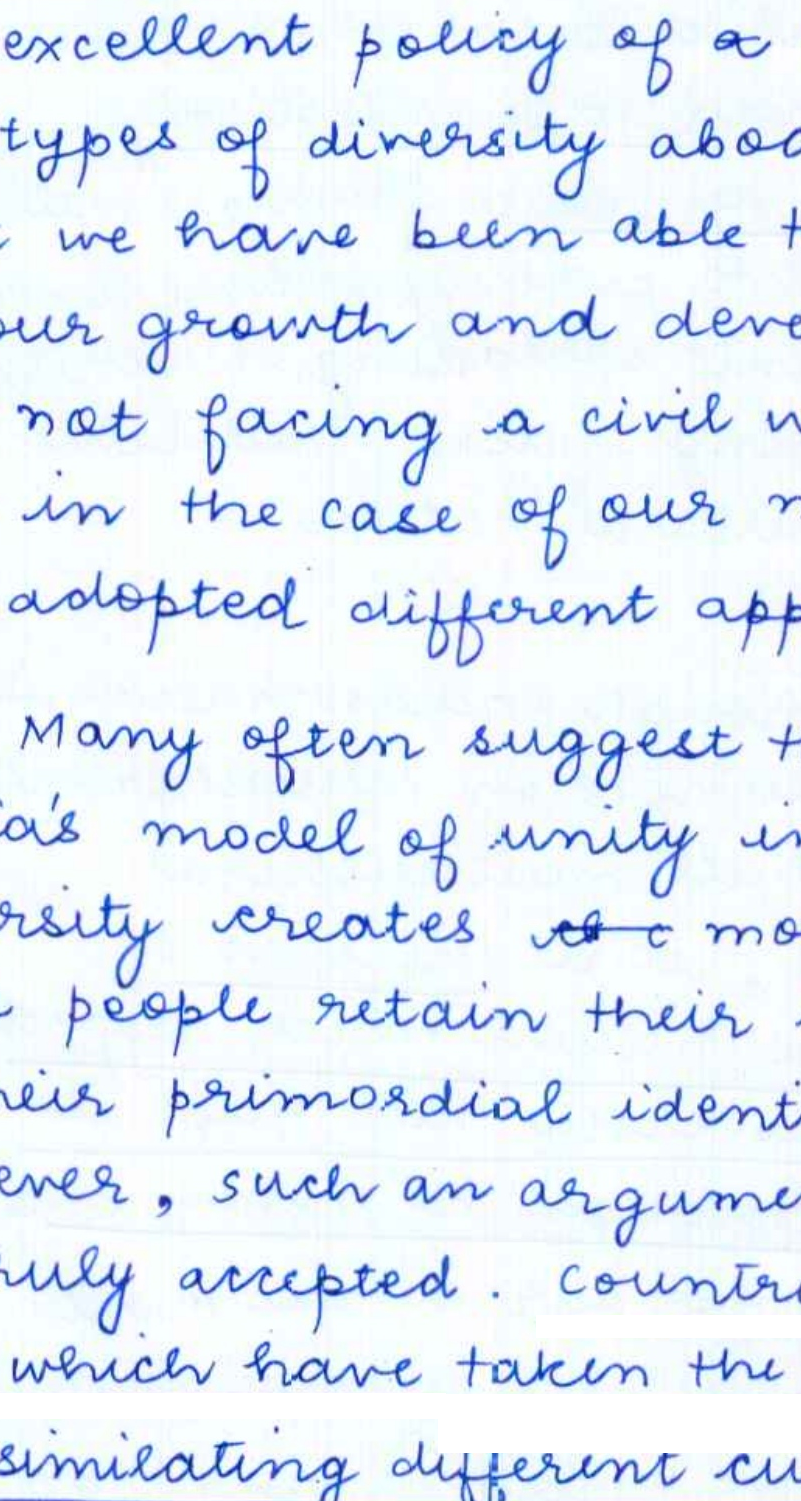 excellent policy of a
types of diversity aboa
we have been able t
our growth and deve
not facing a civil w
in the case of our n
adopted different app
Many often suggest t
ia's model of unity in
rsity creates mo
people retain their
heir primordial identi
ever, such an argume
ruly accepted. Countri
which have taken the
similating different cu